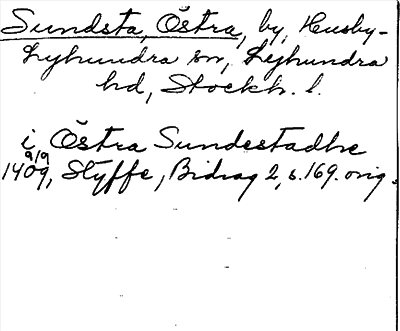 Sundsta, Östra, by, Husby-
Lyhundra sn, Lyhundra
hd, Stockh. l.
i Östra Sundestadhe
9/9
1409, Styffe, Bidrag 2, s. 169. orig.